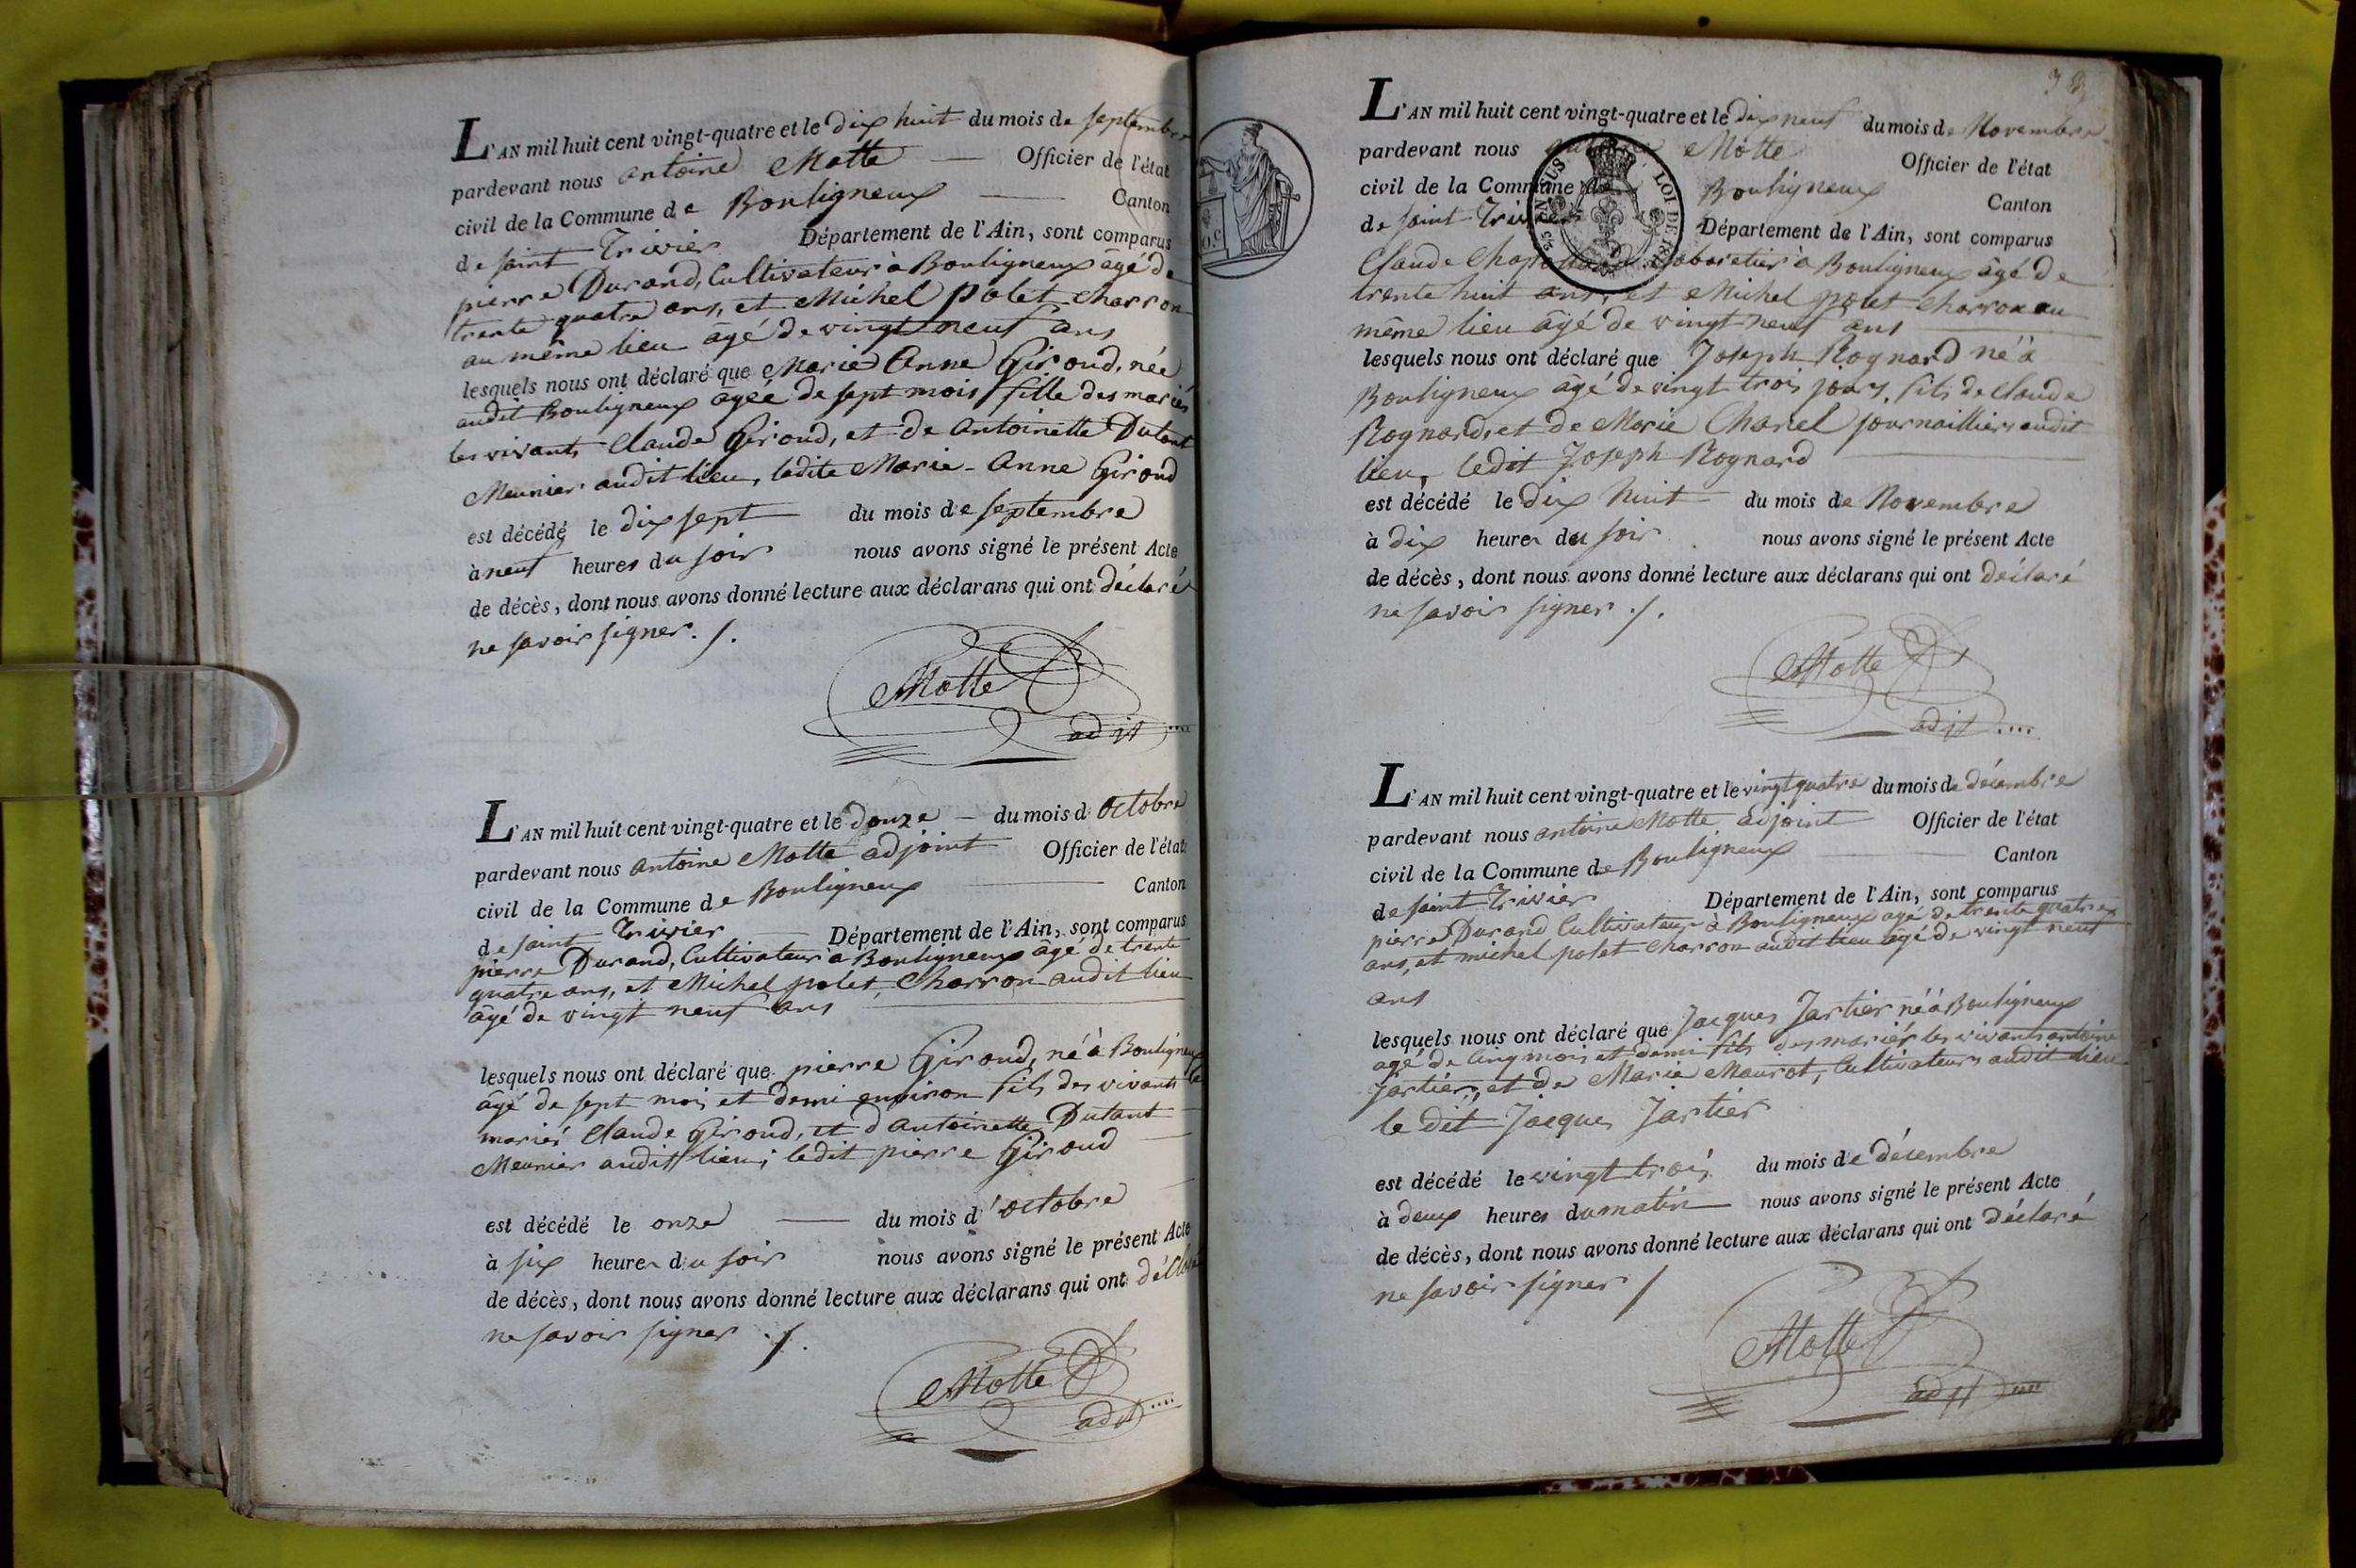 L'AN mil huit cent vingt-quatre et le dix huit du mois de septembre
pardevant nous antoine Motte Officier de l'état
civil de la Commune de Bouligneux Canton
de saint Trivier Département de l'Ain, sont comparus
pierre Durand, Cultivateur à Bouligneux agé de
trente quatre ans, et Michel polet charron
au même lieu âgé de vingt neuf ans
lesquels nous ont déclaré que Marie Anne Giroud, née
audit Bouligneux agée de sept mois fille des mariés
les vivants Claude Giroud, et de Antoinette Dutant
Meunier audit lieu, ladite Marie-Anne Giroud
est décédé le dix sept du mois de septembre
à neuf heures du soir nous avons signé le présent Acte
de décès, dont nous avons donné lecture aux déclarans qui ont déclaré
ne savoir signer ./.
Motte
adjt
L'AN mil huit cent vingt-quatre et le douze du mois d'Octobre
pardevant nous Antoine Motte adjoint Officier de l'état
civil de la Commune de Bouligneux Canton
de saint Trivier Département de l'Ain, sont comparus
pierre Durand, Cultivateur à Bouligneux âgé de trente
quatre ans, et Michel polet, Charron audit lieu
âgé de vingt neuf ans
lesquels nous ont déclaré que pierre Giroud, né à Bouligneux
âgé de sept mois et demi environ fils des vivants
mariés Claude Giroud, et d'antoinette Dutant
Meunier audit lieu; ledit pierre Giroud
est décédé le onze du mois d'octobre
à six heures du soir nous avons signé le présent Acte
de décès, dont nous avons donné lecture aux déclarans qui ont déclaré
ne savoir signer ./.
Motte
adjt
38
L'AN mil huit cent vingt-quatre et le dix neuf du mois de Novembre
pardevant nous Motte Officier de l'état
civil de la Commune de Bouligneux Canton
de saint Trivier Département de l'Ain, sont comparus
Claude Cabaretier à Bouligneux âgé de
trente huit ans, et Michel polet charron au
même lieu âgé de vingt neuf ans
lesquels nous ont déclaré que Joseph Rognard né à
Bouligneux âgé de vingt trois jours, fils de Claude
Rognard, et de Marie Charel journailliers audit
lieu, ledit Joseph Rognard
est décédé le dix huit du mois de Novembre
à dix heures du soir nous avons signé le présent Acte
de décès, dont nous avons donné lecture aux déclarans qui ont déclaré
ne savoir signer ./.
Motte
adjt
LOI DE
L'AN mil huit cent vingt-quatre et le vingt quatre du mois de décembre
pardevant nous antoine Motte adjoint Officier de l'état
civil de la Commune de Bouligneux Canton
de saint Trivier Département de l'Ain, sont comparus
pierre Durand Cultivateur à Bouligneux agé de trente quatre
ans, et michel polet charron audit lieu âgé de vingt neuf
ans
lesquels nous ont déclaré que Jacques Jartier né à Bouligneux
agé de cinq mois et demi fils des mariés les vivants antoine
Jartier, et de Marie Maurot, Cultivateurs audit lieu
le dit Jacques Jartier
est décédé le vingt trois du mois de décembre
à deux heures du matin nous avons signé le présent Acte
de décès, dont nous avons donné lecture aux déclarans qui ont déclaré
ne savoir signer /
Motte
adjt